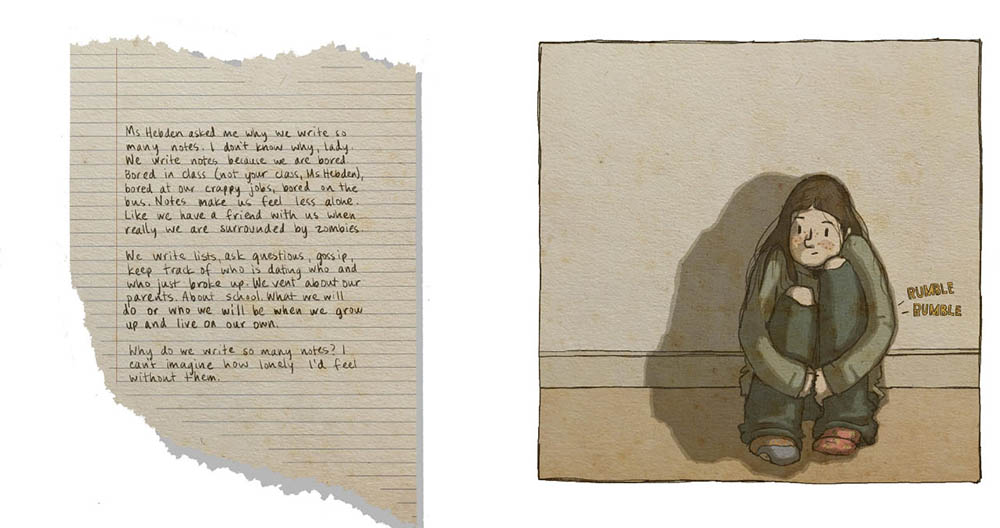 Ms Hebden asked me why we write so
many notes. I don't know why, lady.
We write notes because we are bored.
Bored in class (not your class, Ms Hebden),
bored at our crappy jobs, bored on the
bus. Notes make us feel less alone.
Like we have a friend with us when
really we are surrounded by zombies.
We write lists, ask questions, gossip,
keep track of who is dating who and
who just broke up. We vent about our
parents. About school. What we will
do or who we will be when we grow
up and live on our own.
Why do we write so many notes? I
can't imagine how lonely I'd feel
without them.
RUMBLE
RUMBLE